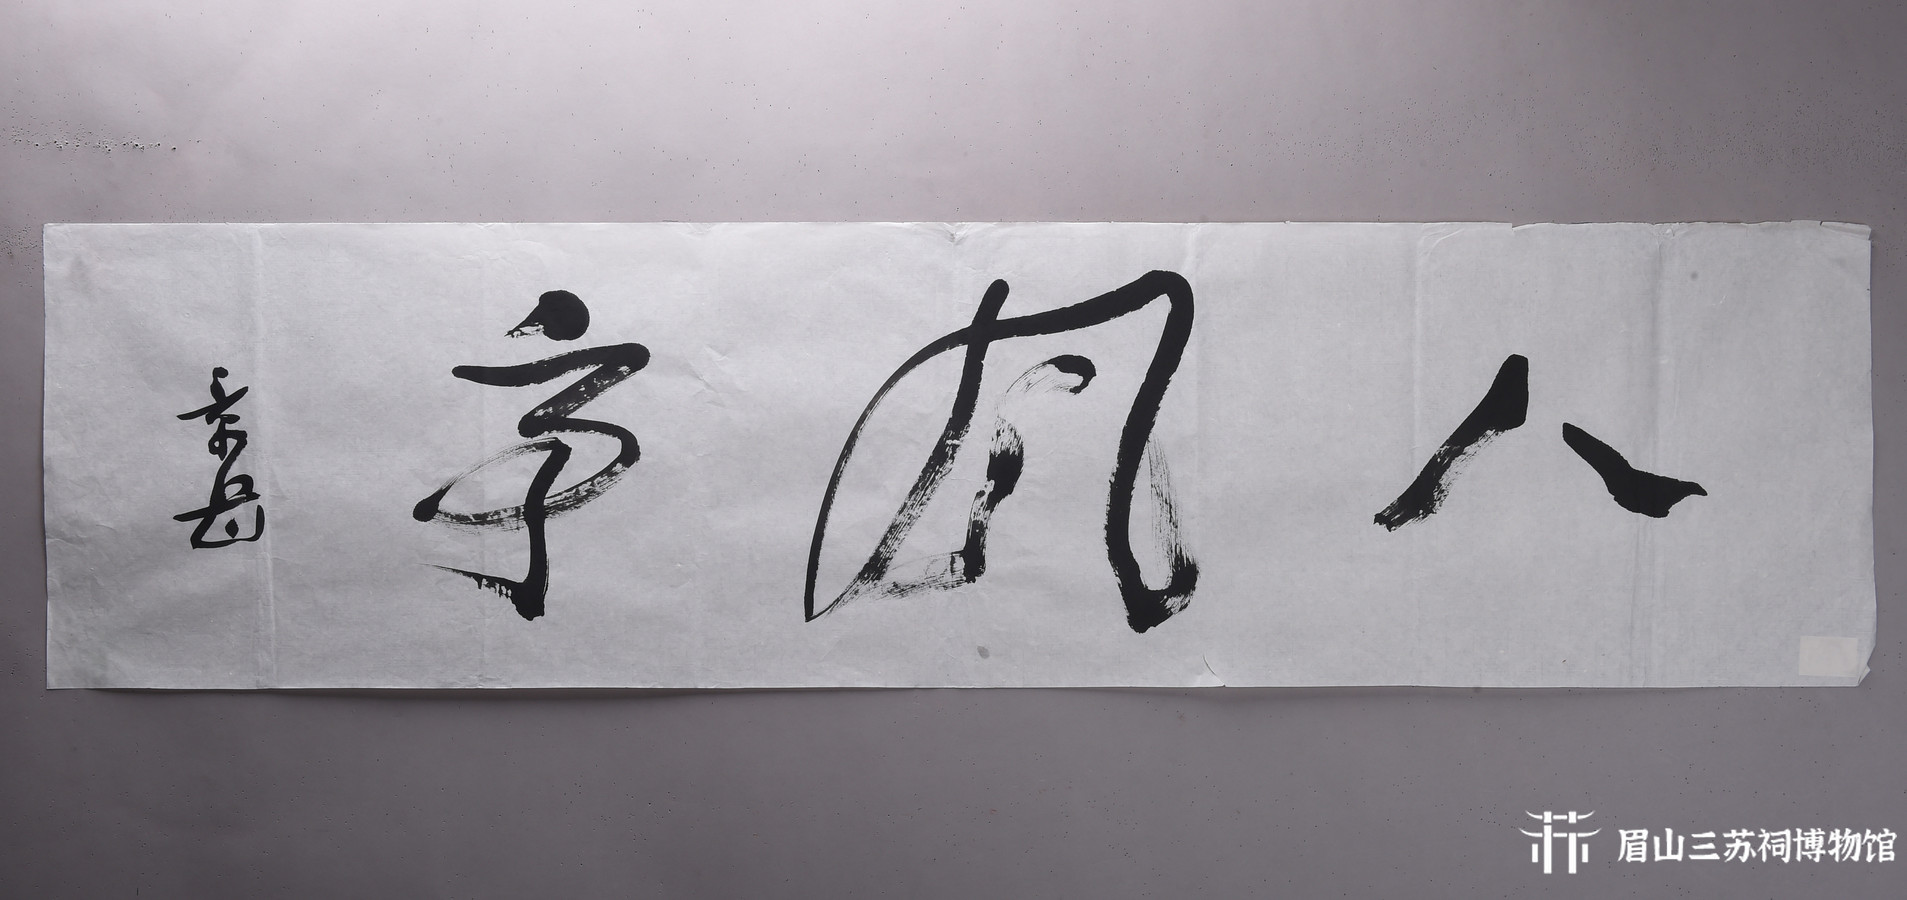 八风亭
景岳
眉山三苏祠博物馆